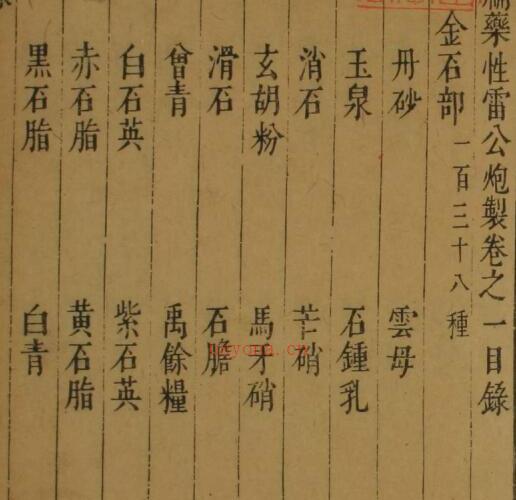 藥性雷公炮製卷之一目錄
金石部 一百三十八種
丹砂 雲母
玉泉 石鍾乳
消石 芒硝
玄胡粉 馬牙硝
滑石 石膽
曾青 禹餘糧
白石英 紫石英
赤石脂 黃石脂
黑石脂 白青